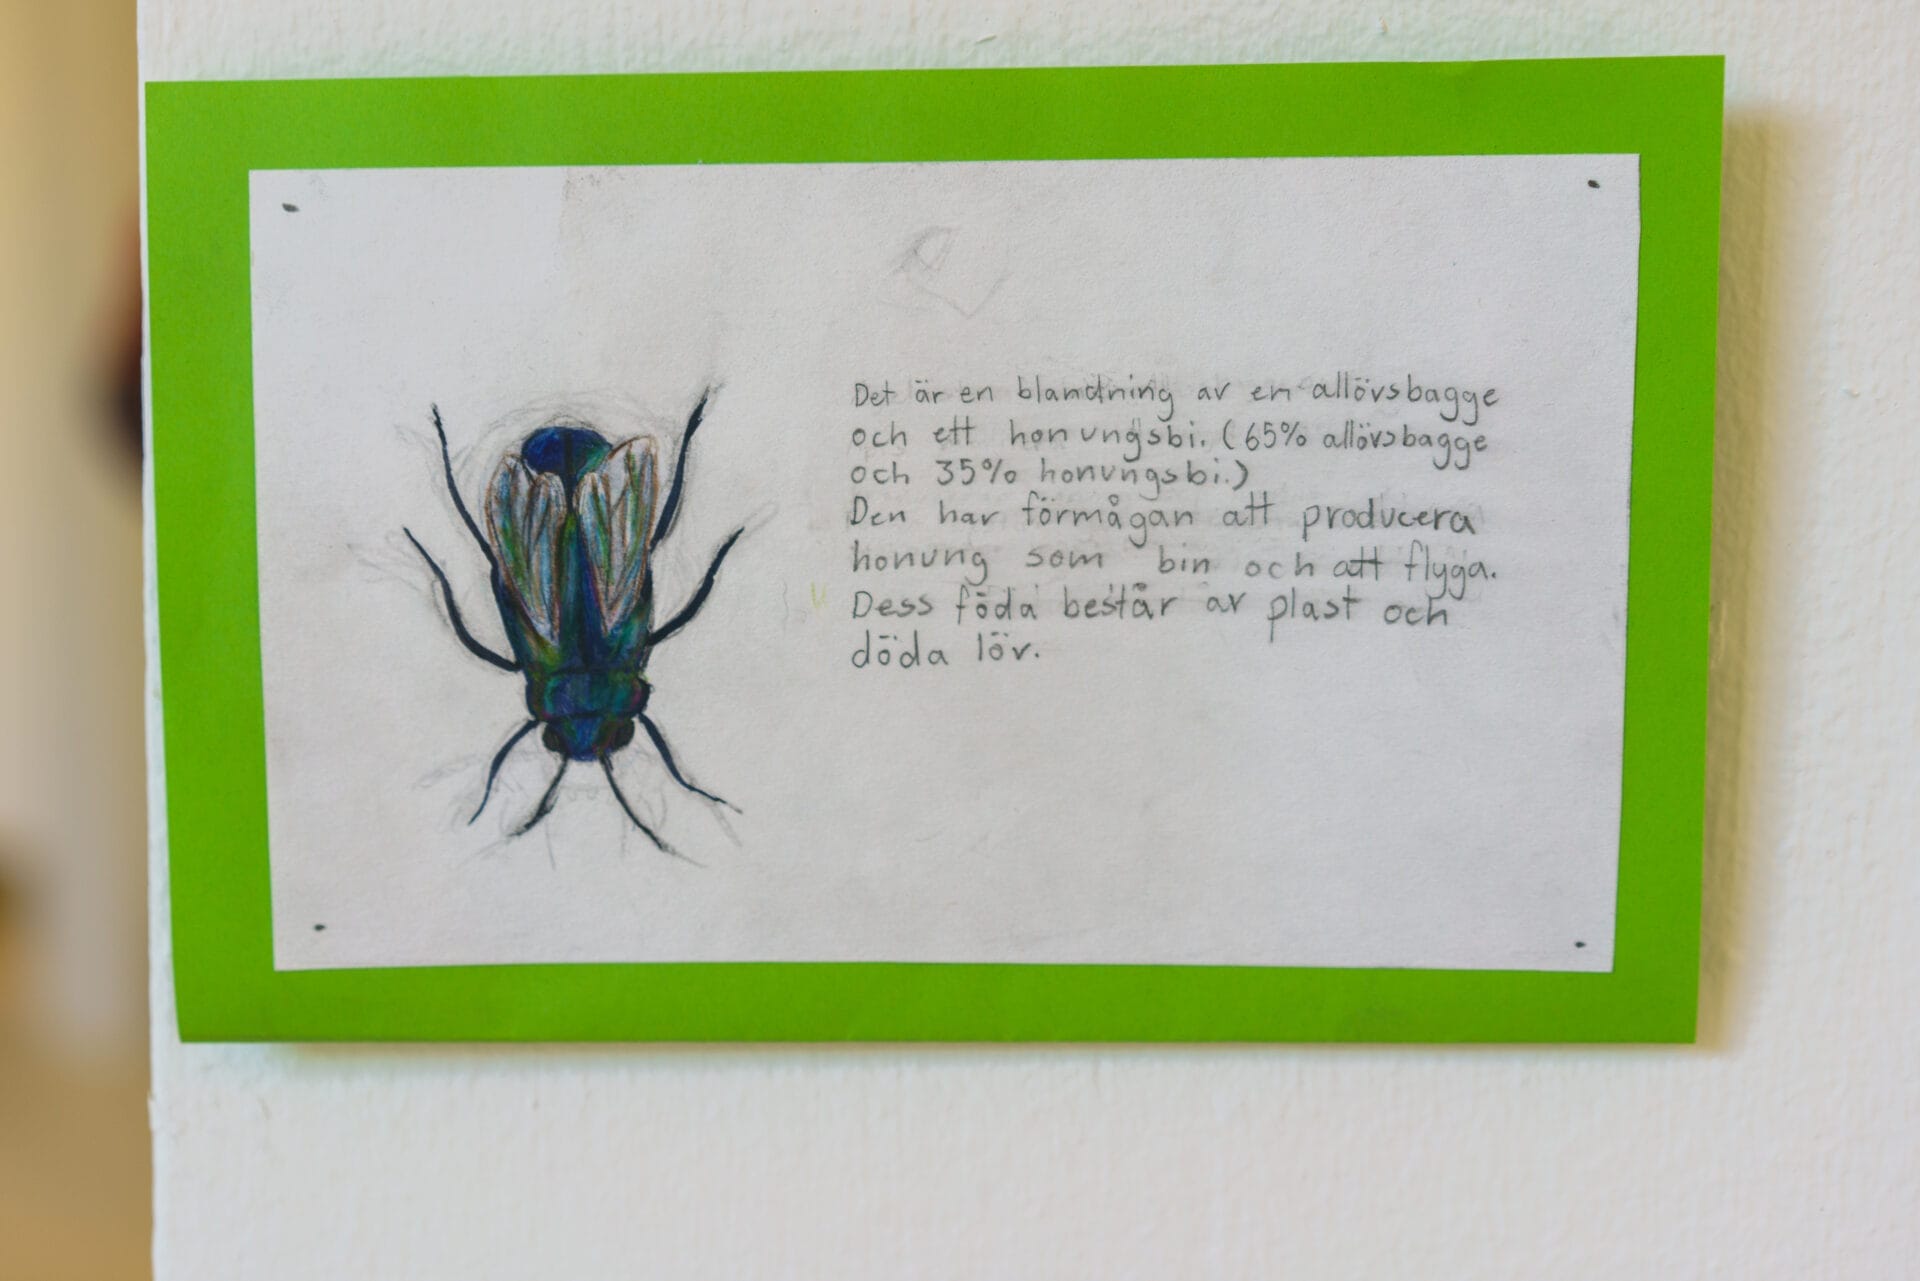 Det är en blandning av en allövsbagge
och ett honungsbi. (65% allövsbagge
och 35% honungsbi.)
Den har förmågan att producera
honung som bin och att flyga.
Dess föda består av plast och
döda löv.